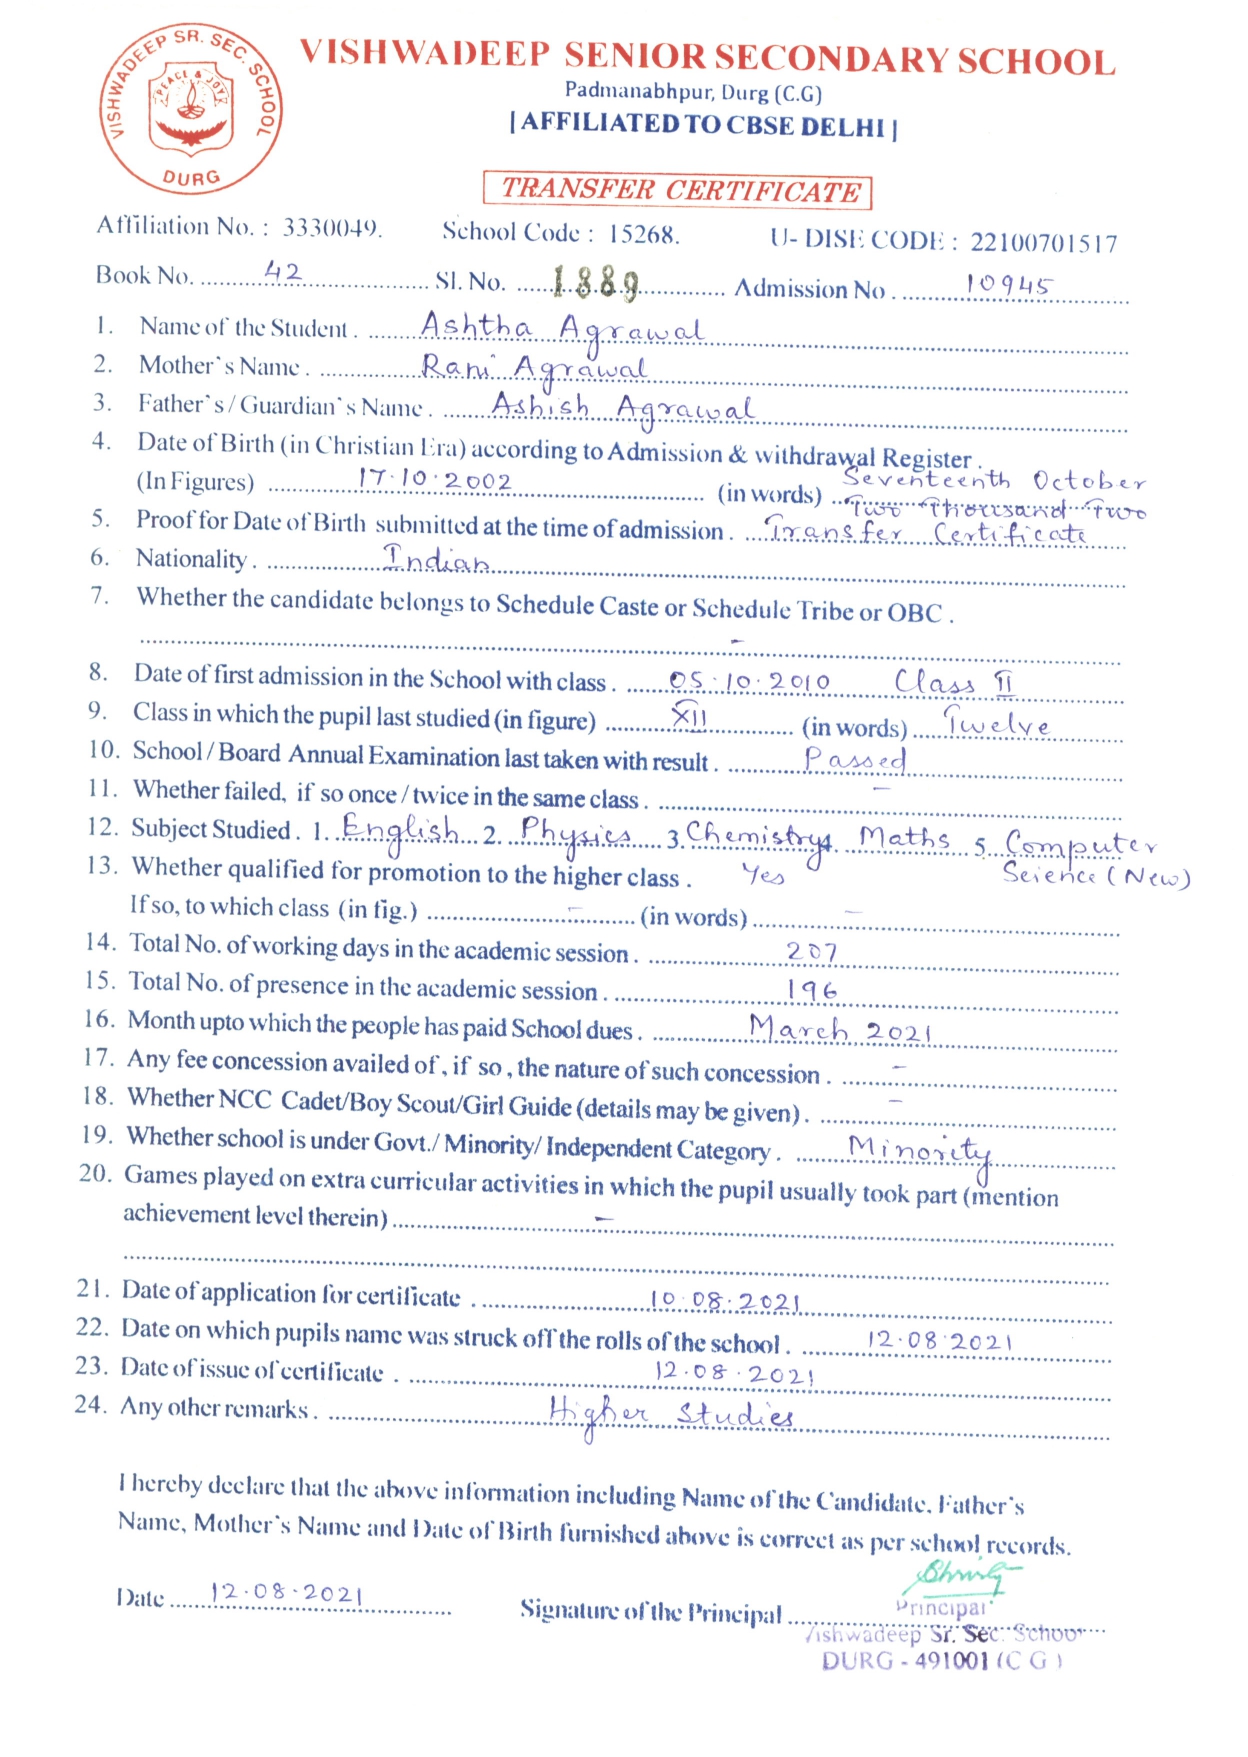 VISHWADEEP SR. SEC. SCHOOL
PEACE & JOY
DURG
VISHWADEEP SENIOR SECONDARY SCHOOL
Padmanabhpur, Durg (C.G)
| AFFILIATED TO CBSE DELHI |
TRANSFER CERTIFICATE
Affiliation No. : 3330049. School Code : 15268. U- DISE CODE : 22100701517
Book No. 42 Sl. No. 1889 Admission No . 10945
1. Name of the Student . Ashtha Agrawal
2. Mother`s Name . Rani Agrawal
3. Father`s / Guardian`s Name . Ashish Agrawal
4. Date of Birth (in Christian Era) according to Admission & withdrawal Register .
(In Figures) 17.10.2002 (in words) Seventeenth October
Two Thousand Two
5. Proof for Date of Birth submitted at the time of admission . Transfer Certificate
6. Nationality . Indian
7. Whether the candidate belongs to Schedule Caste or Schedule Tribe or OBC .
-
8. Date of first admission in the School with class . 05.10.2010 Class II
9. Class in which the pupil last studied (in figure) XII (in words) Twelve
10. School / Board Annual Examination last taken with result . Passed
11. Whether failed, if so once / twice in the same class . -
12. Subject Studied . 1. English 2. Physics 3. Chemistry 4. Maths 5. Computer
Science (New)
13. Whether qualified for promotion to the higher class . Yes
If so, to which class (in fig.) - (in words) -
14. Total No. of working days in the academic session . 207
15. Total No. of presence in the academic session . 196
16. Month upto which the people has paid School dues . March 2021
17. Any fee concession availed of , if so , the nature of such concession . -
18. Whether NCC Cadet/Boy Scout/Girl Guide (details may be given) . -
19. Whether school is under Govt./ Minority/ Independent Category . Minority
20. Games played on extra curricular activities in which the pupil usually took part (mention
achievement level therein) -
21. Date of application for certificate . 10.08.2021
22. Date on which pupils name was struck off the rolls of the school . 12.08.2021
23. Date of issue of certificate . 12.08.2021
24. Any other remarks . Higher Studies
I hereby declare that the above information including Name of the Candidate, Father's
Name, Mother's Name and Date of Birth furnished above is correct as per school records.
Date 12.08.2021 Signature of the Principal
Principal
Vishwadeep Sr. Sec. School
DURG - 491001 (C G )